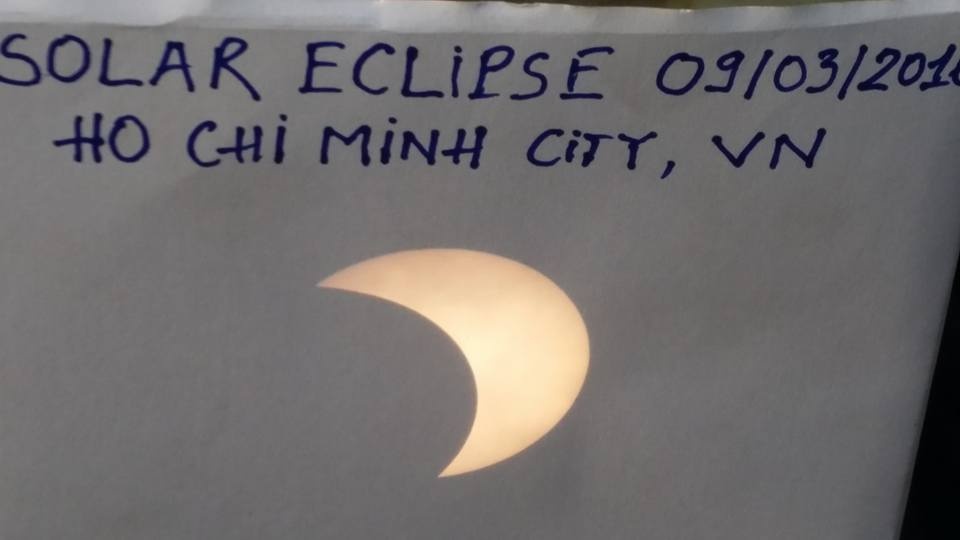 SOLAR ECLIPSE 09/03/2016
HO CHI MINH CITY, VN